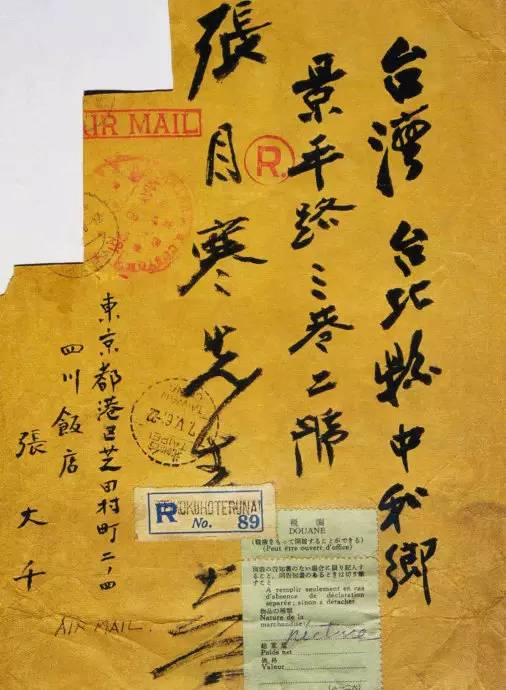 台灣 台北縣中和鄉
景平路三巷二號
張目寒先生
AIR MAIL
R.
東京都港区芝田村町二ノ四
四川飯店
張大千
AIR MAIL.
TAIPEI
R
No. 89
税関
DOUANE
(税関をもって開披することができる)
(Peut être ouvert d'office)
A remplir seulement en cas
d'absence de déclaration
séparée; sinon à détacher
物品の種類
Nature de la
marchandise
picture
総重量
Poids net
価格
Valeur